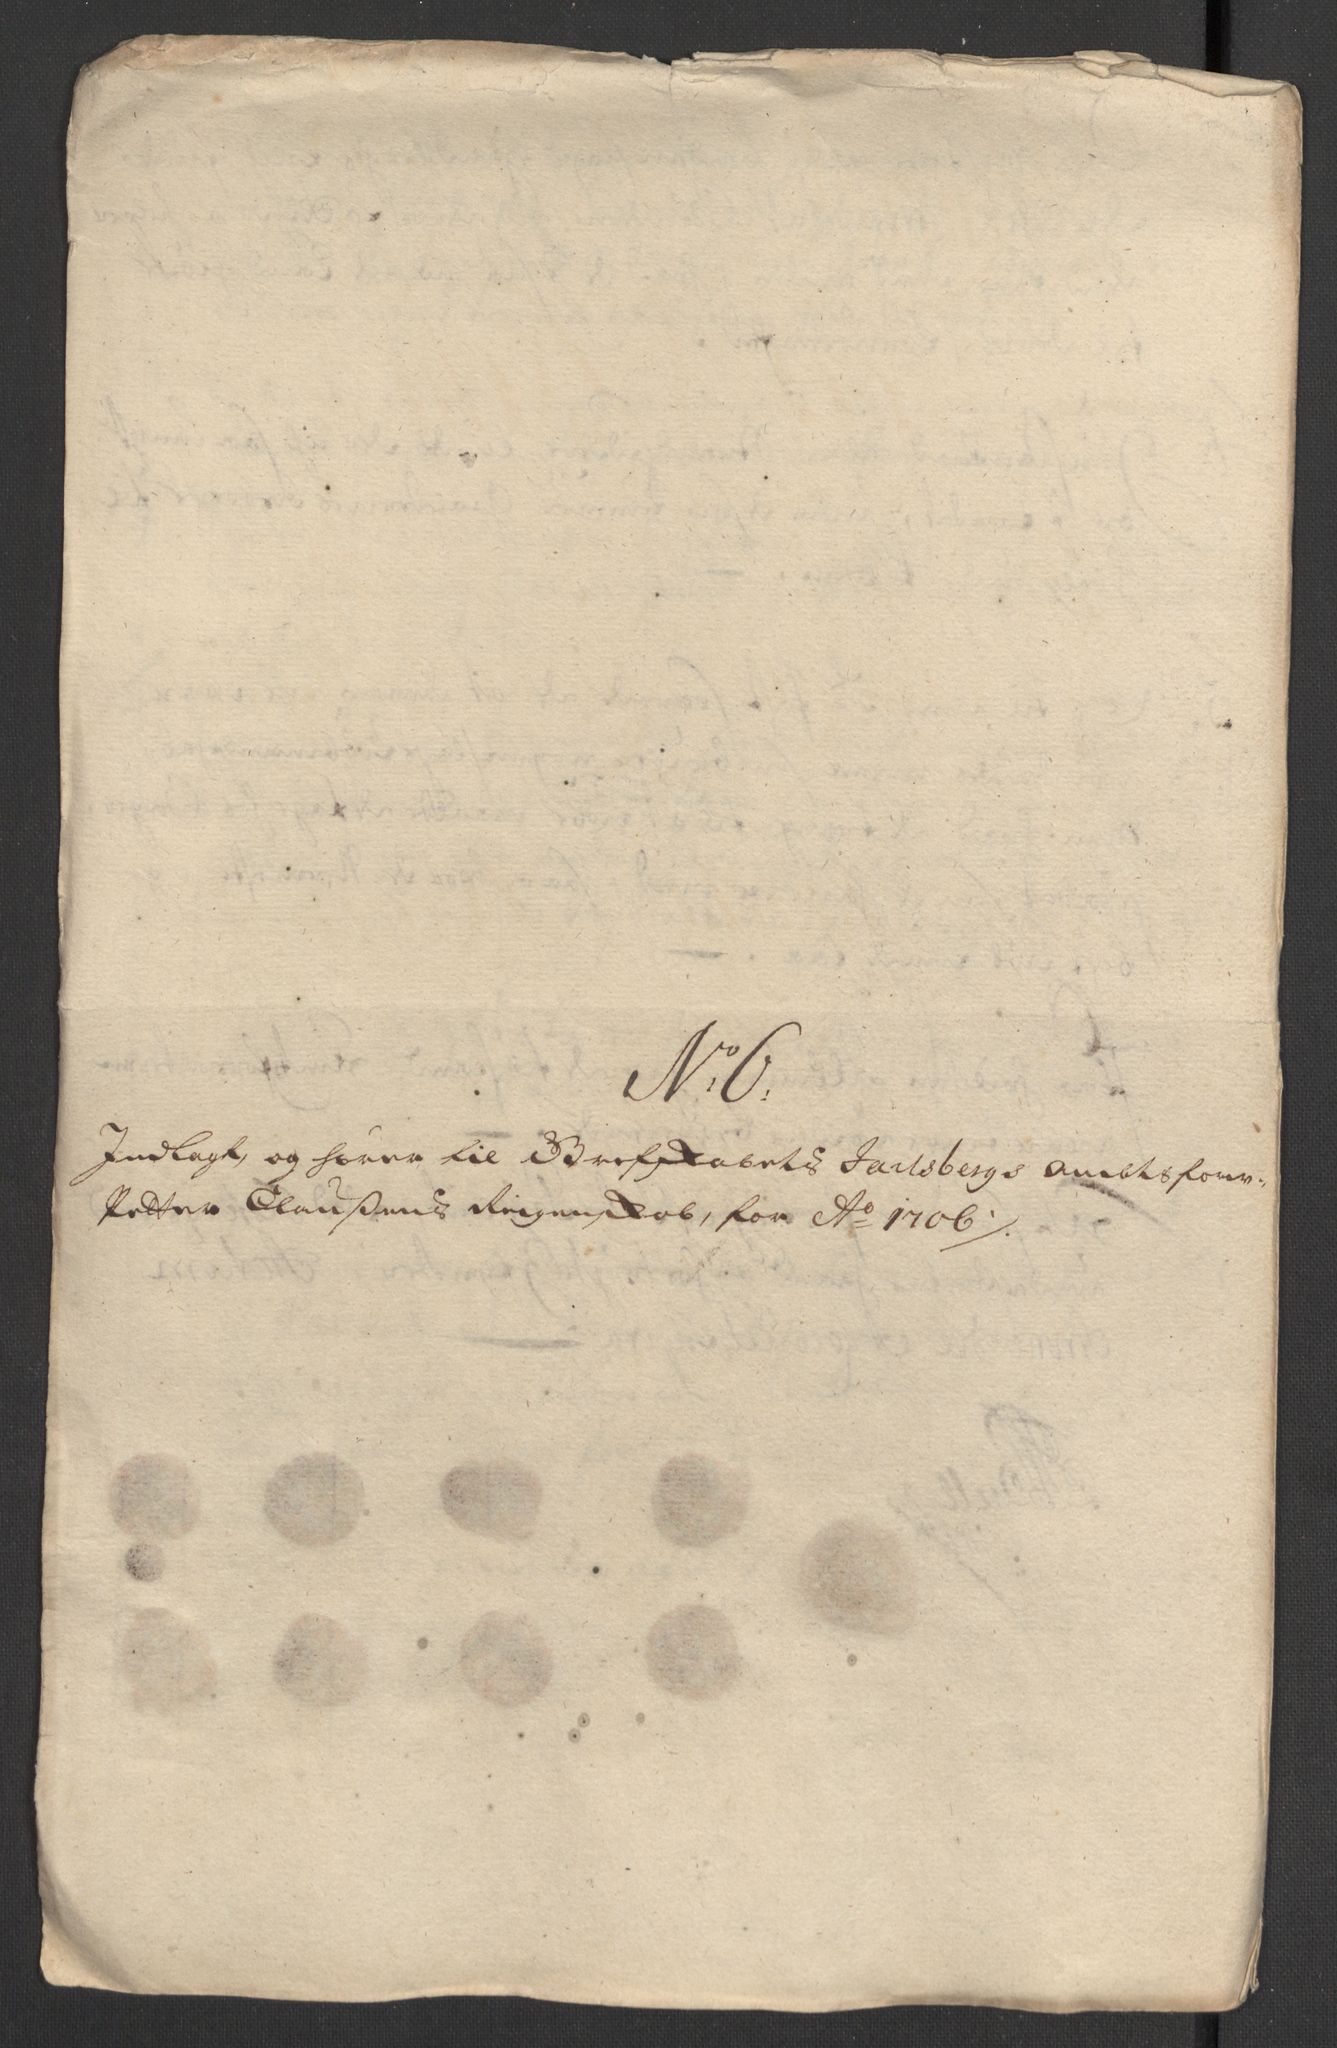 No. 6.
Indlagt, og hører til Grefskabets Jarlsbergs Ambtsforv:
Petter Claußens Reigenskab, for Ao 1706 /.